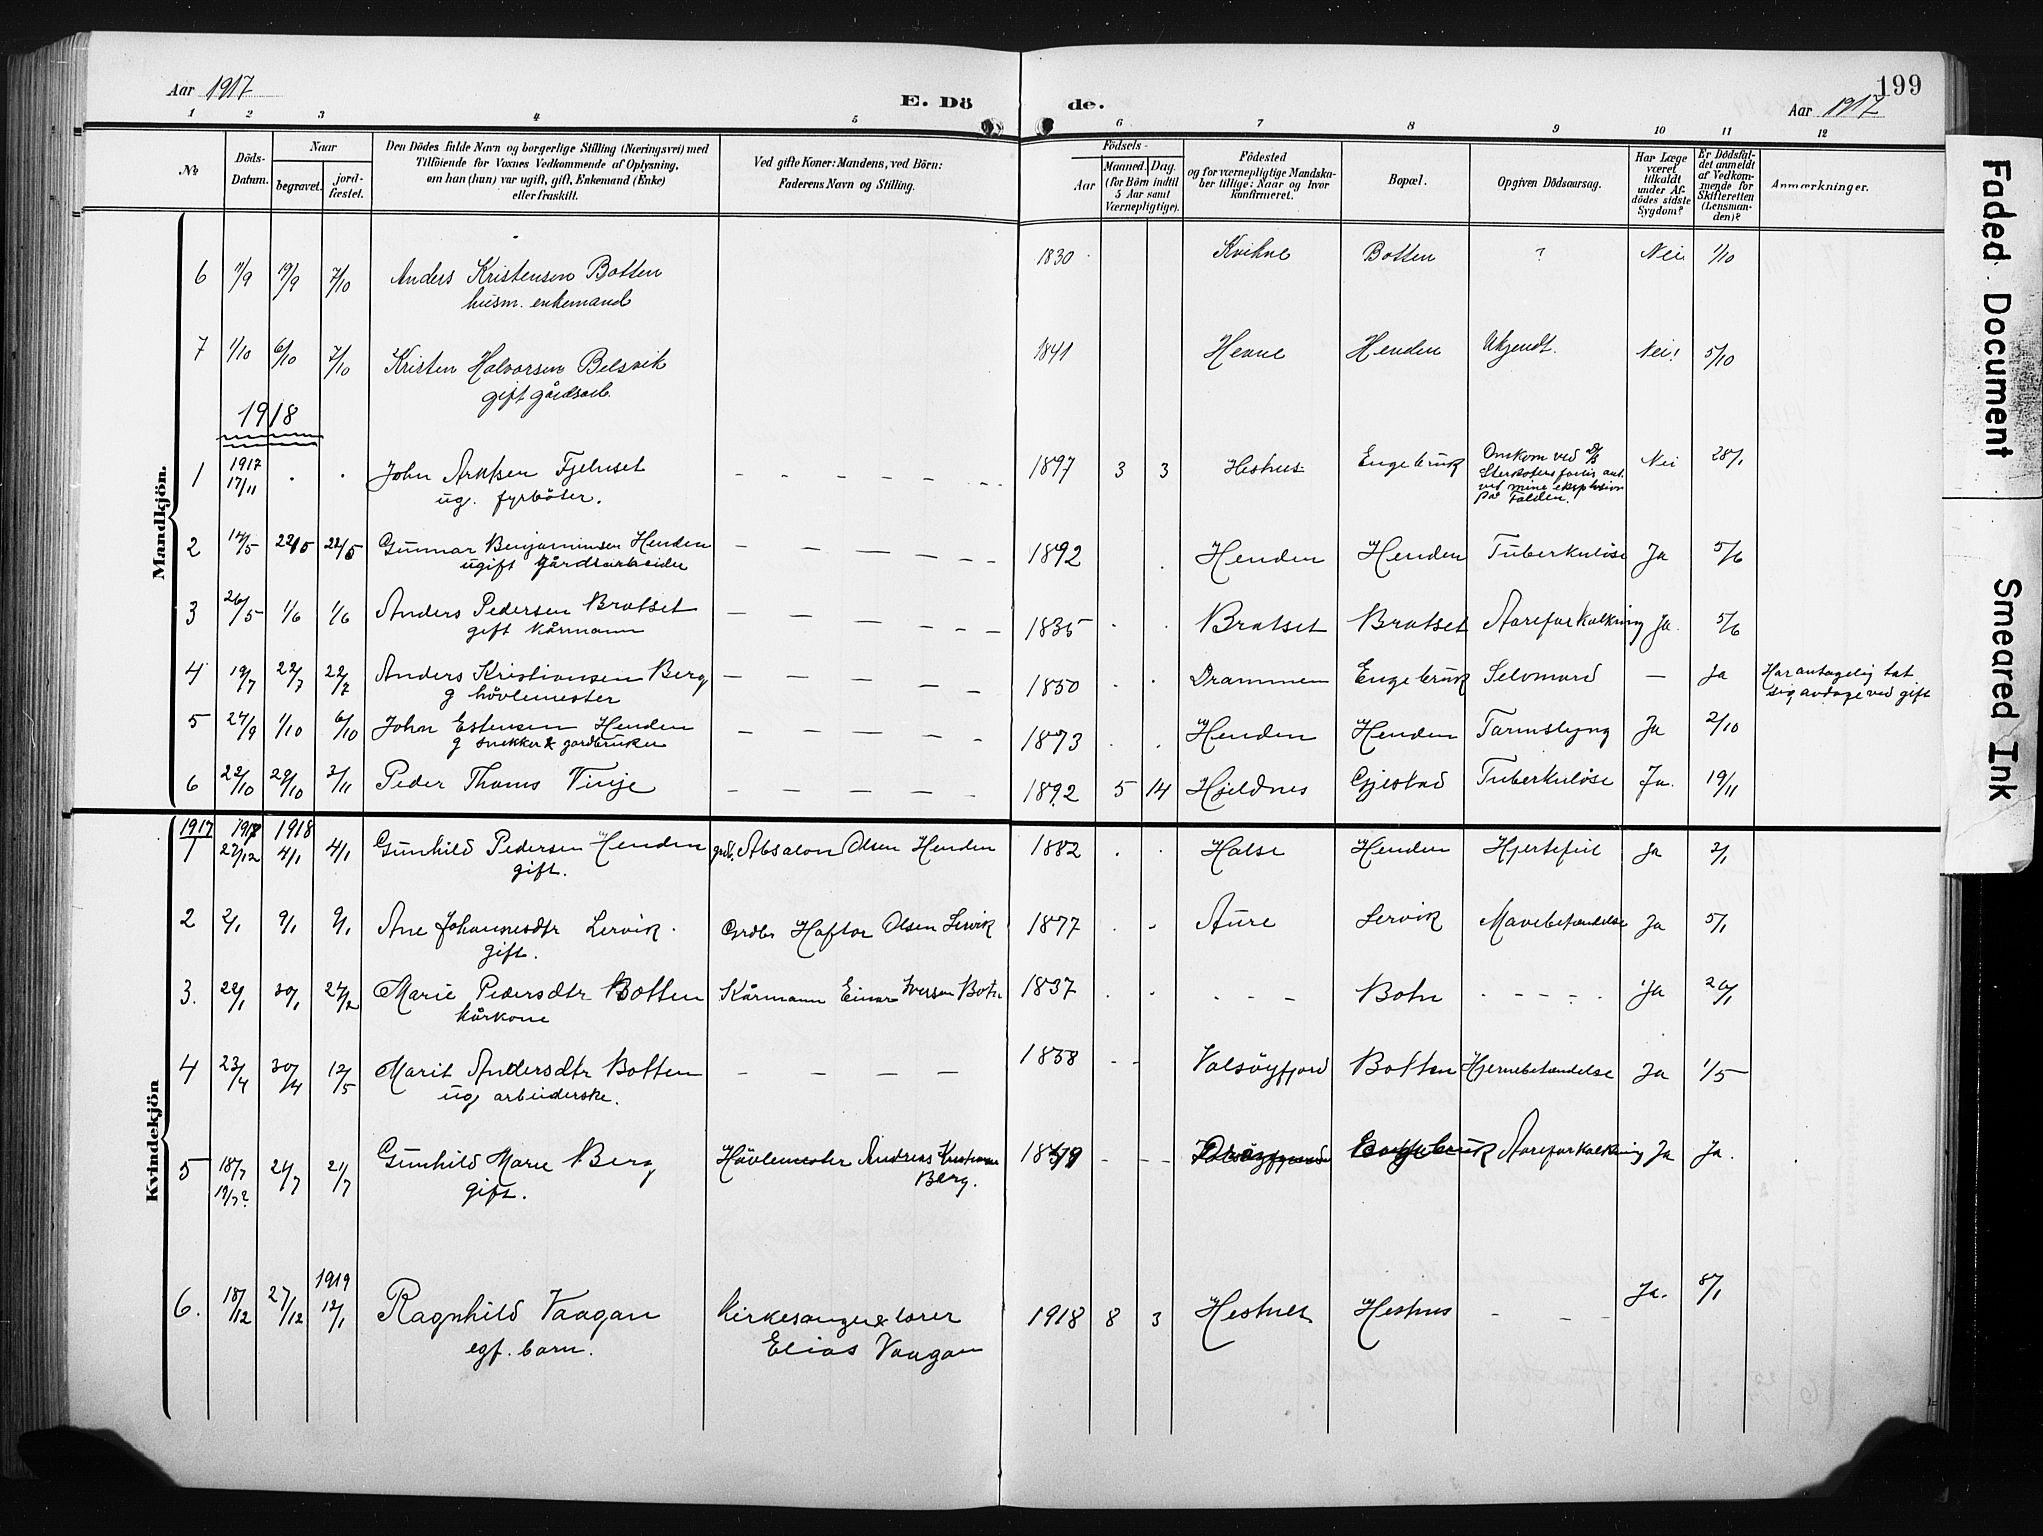 Aar 1917
E. Döde.
Aar 1917
199
1 2 3 4 5 6 7 8 9 10 11 12
No.
Döds-Datum.
Naar
begravet.
jord-fæstet.
Den Dödes fulde Navn og borgerlige Stilling (Næringsvei) med
Tilföiende for Voxnes Vedkommende af Oplysning,
om han (hun) var ugift, gift, Enkemand (Enke)
eller fraskilt.
Ved gifte Koner: Mandens, ved Börn:
Faderens Navn og Stilling.
Födsels-
Aar
Maaned. Dag.
(for Börn indtil
5 Aar samt
Værnepligtige).
Födested
og for værnepligtige Mandska-
ber tillige: Naar og hvor
konfirmeret.
Bopæl.
Opgiven Dödsaarsag.
Har Læge
været
tilkaldt
under Af-
dödes sidste
Sygdom?
Er Dödsfal-
det anmeldt
af Vedkom-
mende for
Skifteretten
(Lensman-
den)?
Anmærkninger.
Mandkjön.
6 11/9 19/9 7/10 Anders Kristensen Botten 1830 Kvihne Botten ? Nei 1/10
husm. enkemand
7 1/10 6/10 7/10 Kristen Halvorsen Belsvik 1841 Hevne Henden Ukjendt. Nei! 5/10
gift gårdsarb.
1918
1 1917 17/11 . . John Fjelnset 1897 3 3 Hestnes Engebruk Omkom ved D/S Nei 28/1
ug. fyrböter.
ved mine eksplosion
på
2 12/5 22/5 22/5 Gunnar Benjaminsen Henden 1892 Henden Henden Tuberkulöse Ja 5/6
ugift gårdsarbeider
3 26/5 1/6 1/6 Anders Pedersen Bratset 1835 Bratset Bratset Aareforkalkning Ja. 5/6
gift kårmann
4 19/7 22/7 22/7 Anders Kristiansen Berg 1850 Drammen Engebruk Selvmord — Ja Har antagelig tat
g hövlemester sig avdage ved gift
5 27/9 1/10 6/10 John Estensen Henden 1873 Henden Henden Tarmslyng Ja 2/10
g snekker & gardbruker
6 22/10 29/10 3/11 Peder Thoms Vinje 1892 5 14 Hjeldnes Gjestad Tuberkulöse Ja. 19/11
Kvindekjön
1917 1917 1918
1 27/12 4/1 4/1 Gunhild Pedersen Henden grdb. Absalon Olsen Henden 1882 Halse Henden Hjertefeil Ja 2/1
gift.
2 2/1 9/1 9/1 Ane Johannesdtr Lervik. Grdbr Haftor Olsen Lervik 1877 Aure Lervik Mavebetændelse Ja 5/1
gift.
3. 22/1 30/1 27/2 Marie Pedersdtr Botten Kårmann Einar Iversen Botn 1837 Botn Ja 29/1
kårkone
4 23/4 30/4 12/5 Marit Andersdtr Botten 1858 Valsöyfjord Botten Hjernebetændelse Ja 1/5
ug arbeiderske.
5 18/7 21/7 21/7 Gunhild Marie Berg Hövlemester Andreas Kristiansen Aareforkalkning Ja Ja.
19/7? gift. Berg.
1919
6. 18/12 27/12 12/1 Ragnhild Vaagan kirkesanger & lærer 1918 8 3 Hestnes Hestnes Ja. 8/1
egf. barn. Elias Vaagan
Faded Document
Smeared Ink